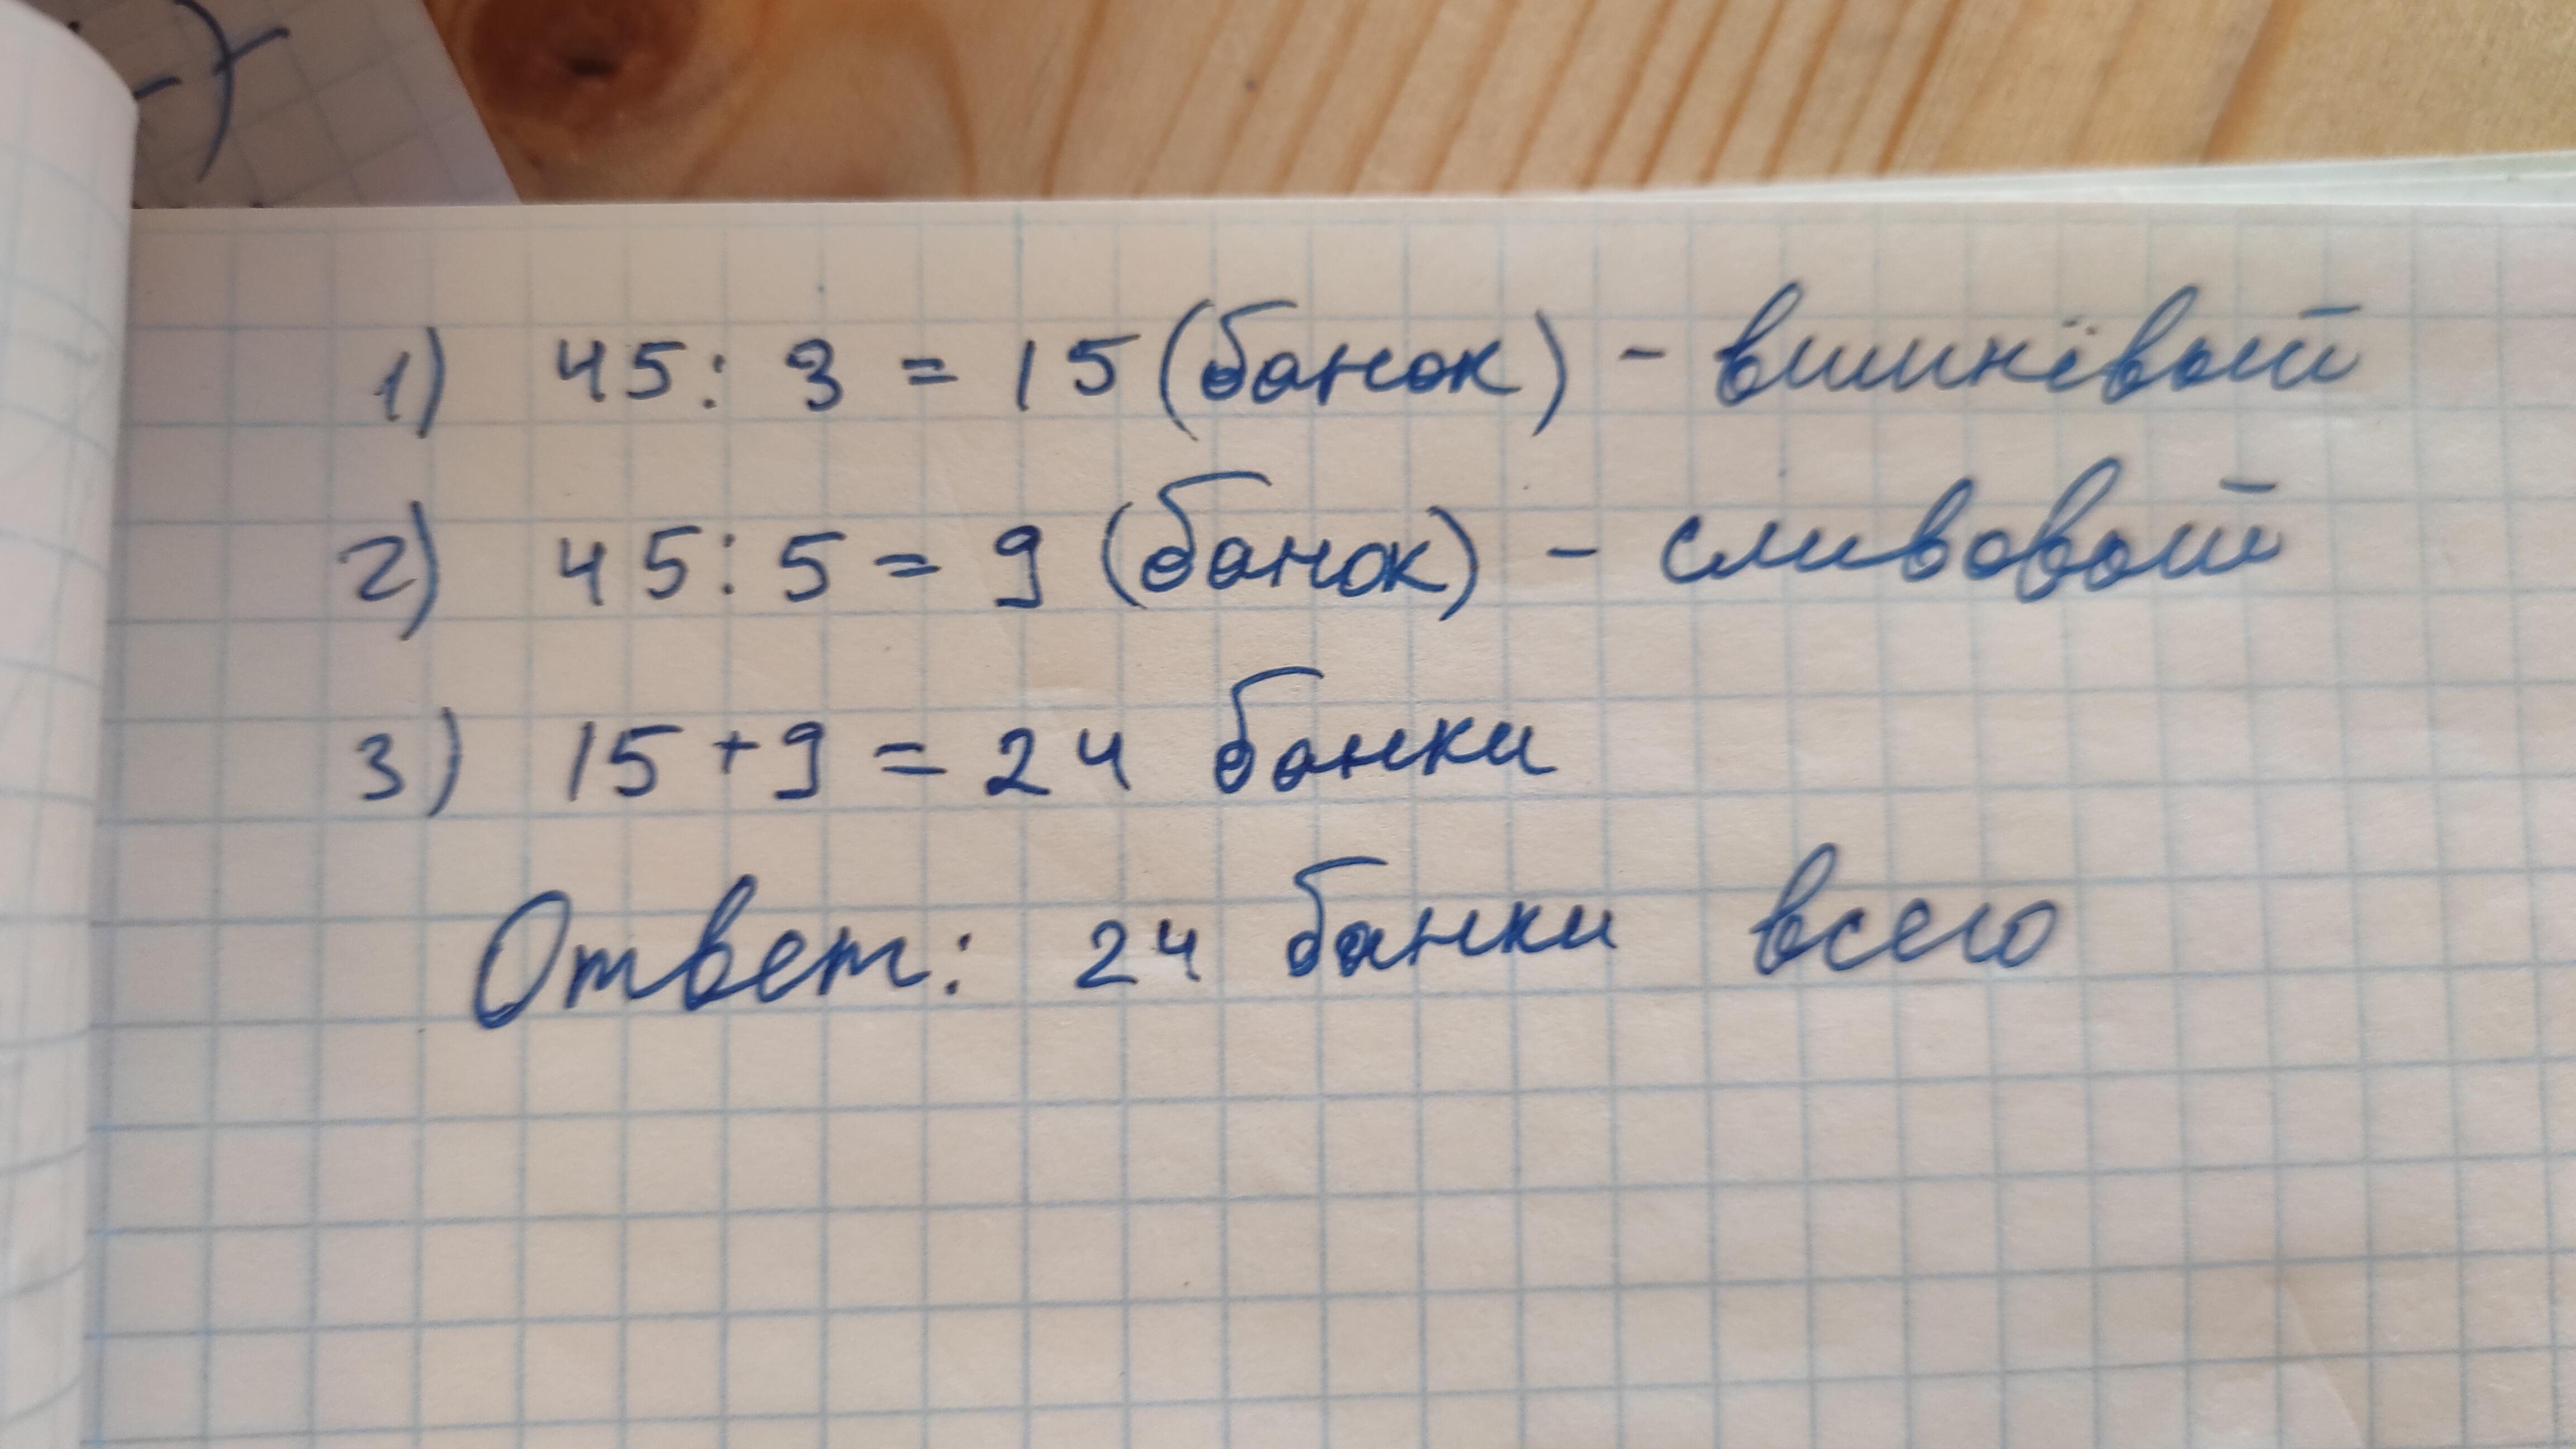 1) 45 : 3 = 15 (банок) - вишнёвый
2) 45 : 5 = 9 (банок) - сливовый
3) 15 + 9 = 24 банки
Ответ: 24 банки всего